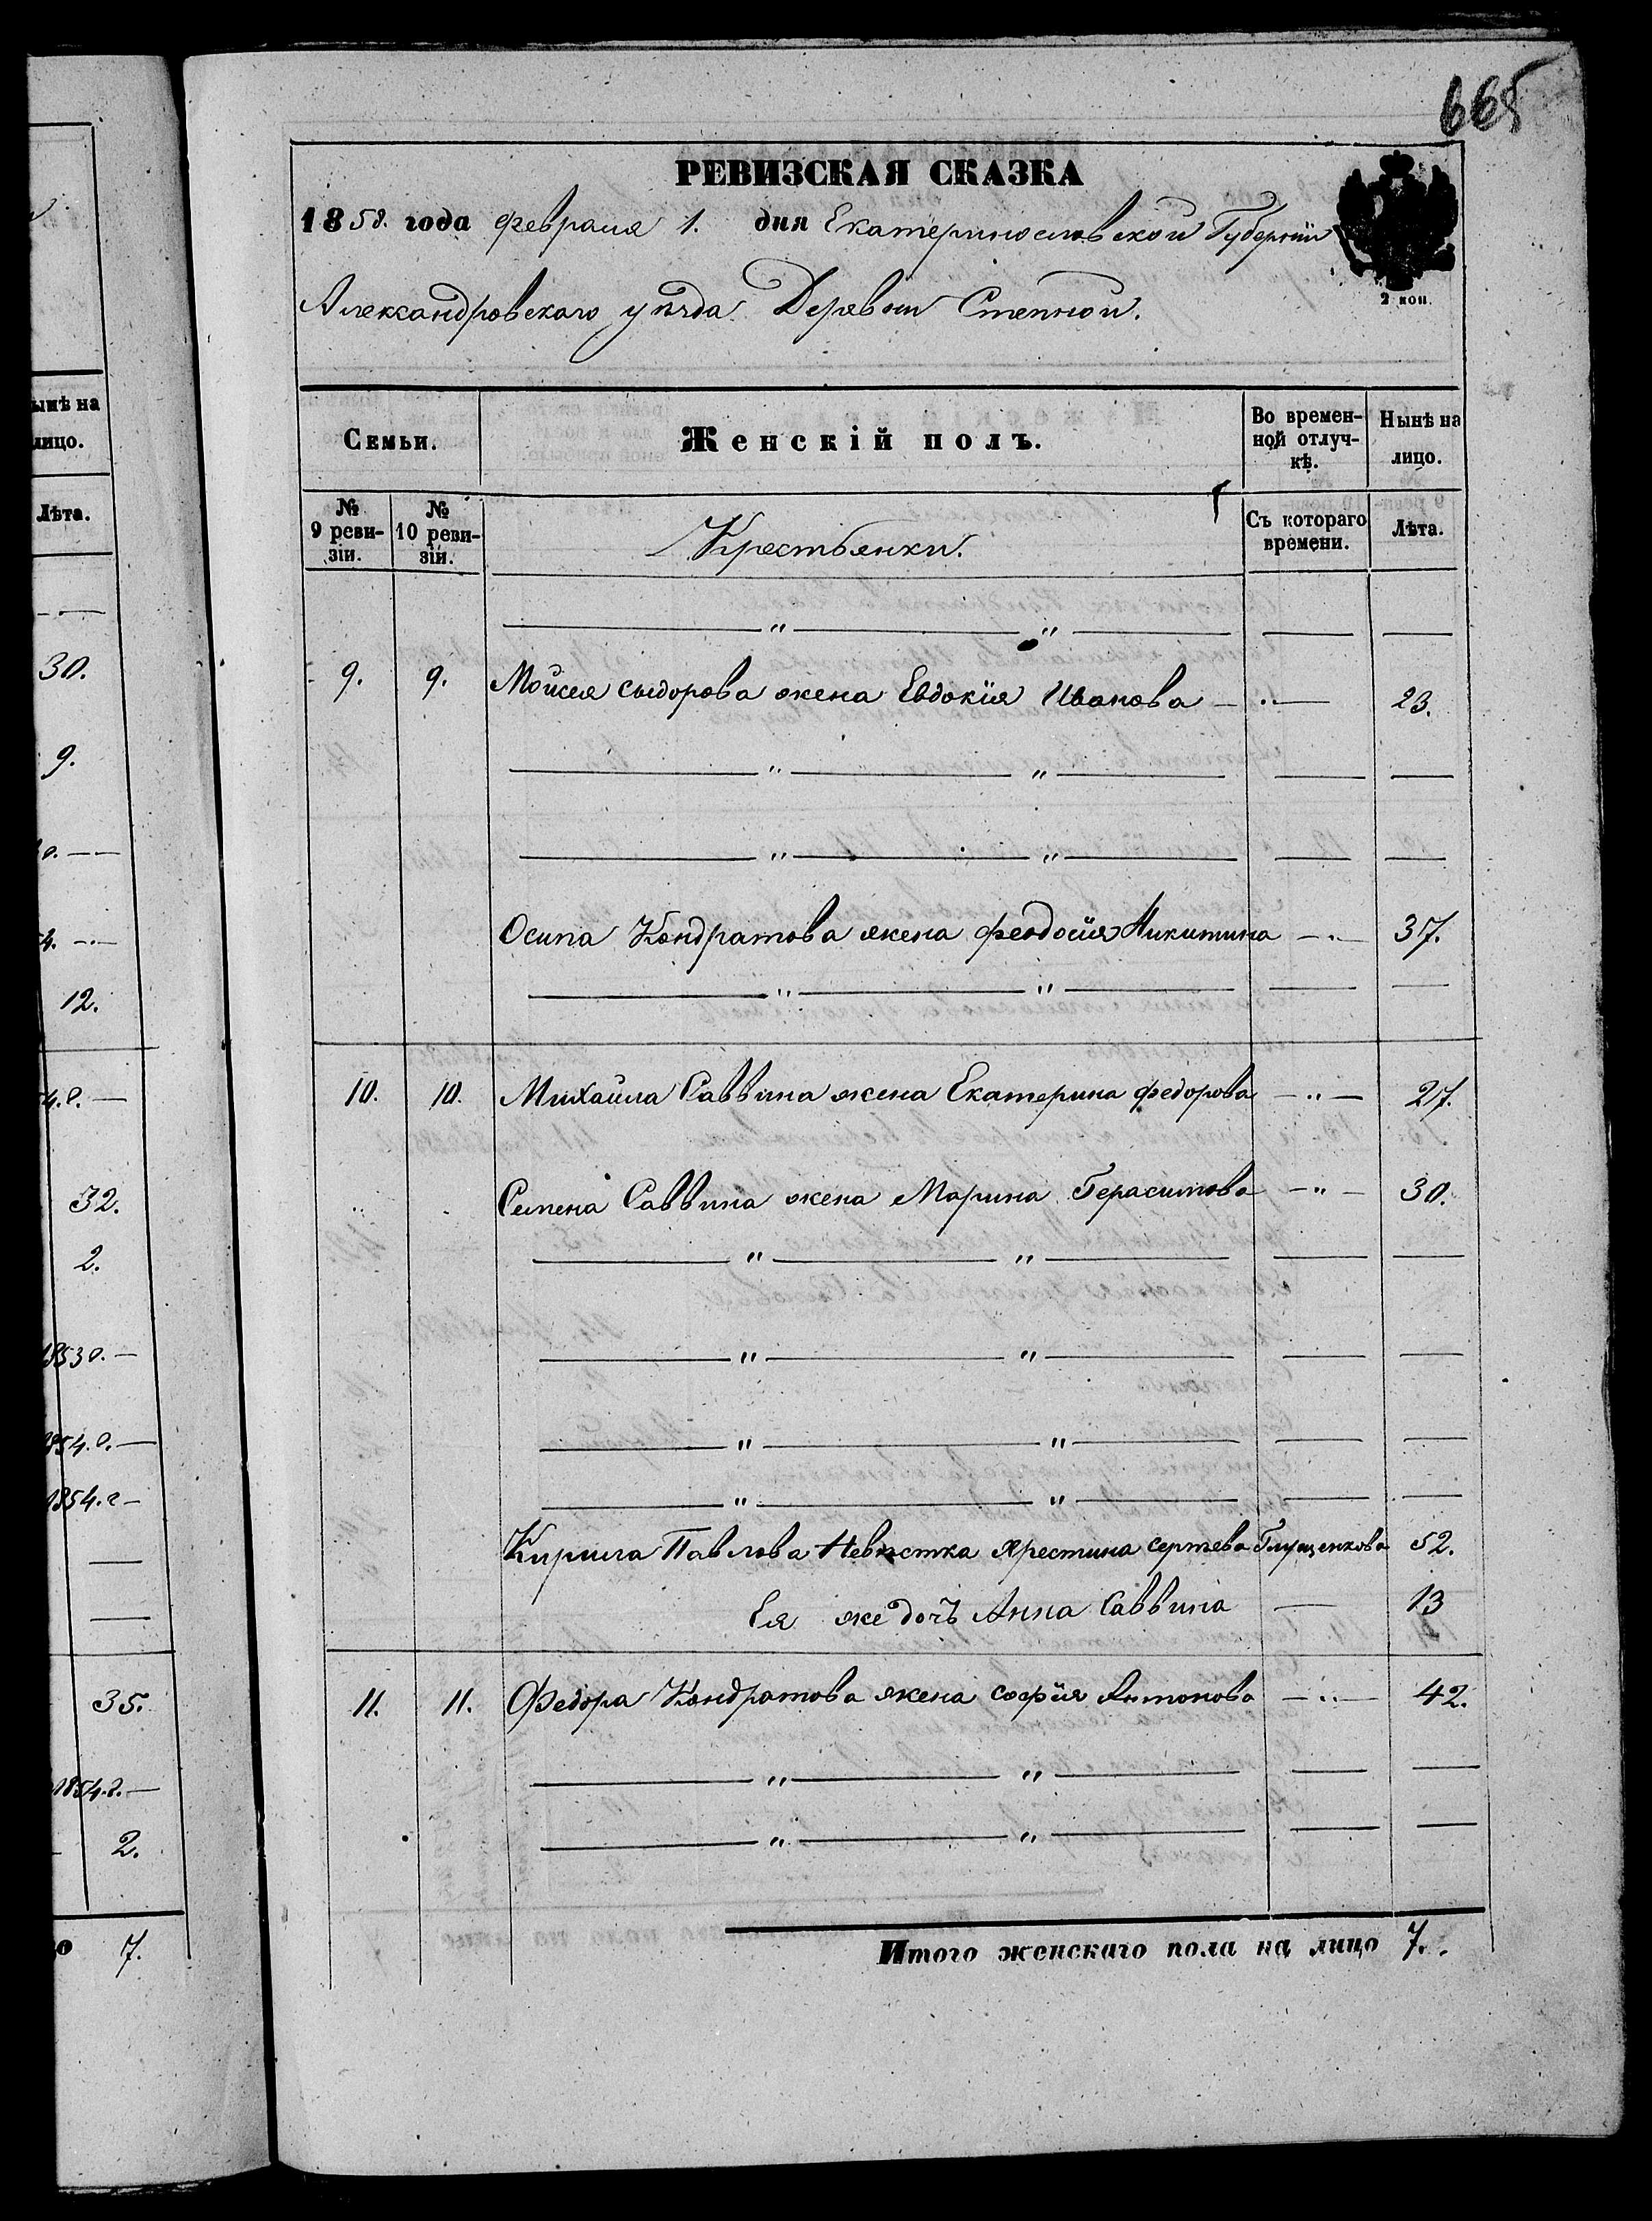 ынѣ на
лицо.
Лѣта.
30.
9.
12.
32.
2.
1853 г. —
1854. г. —
1854. г —
35.
1854. г. —
2.
7.
665
РЕВИЗСКАЯ СКАЗКА
1858. года февраля 1. дня Екатеринославской Губерніи
2 коп.
Александровскаго уѣзда Деревни Степной.
Семьи.
Женскій полъ.
Во времен-
ной отлуч-
кѣ.
Нынѣ на
лицо.
№
9 реви-
зіи.
№
10 реви-
зіи.
Крестьянки.
Съ котораго
времени.
Лѣта.
— " — " — — —
9. 9. Мойсея сыдорова жена Евдокія Иванова — " — 23.
— " — " — — —
— " — " — — —
Осипа Кондратова жена феодосія Никитина — " — 37.
— " — " — — —
10. 10. Михайла Саввина жена Екатерина федорова — " — 27.
Семена Саввина жена Марина Герасимова — " — 30.
— " — " — — —
— " — " — — —
— " — " — — —
— " — " — — —
Кирила Павлова Невѣстка Хрестина сергѣева Глущенкова 52.
Ея же дочь Анна Саввина — 13
11. 11. Федора Кондратова жена софія Антонова — " — 42.
— " — " — — —
— " — " — — —
Итого женскаго пола на лицо 7.